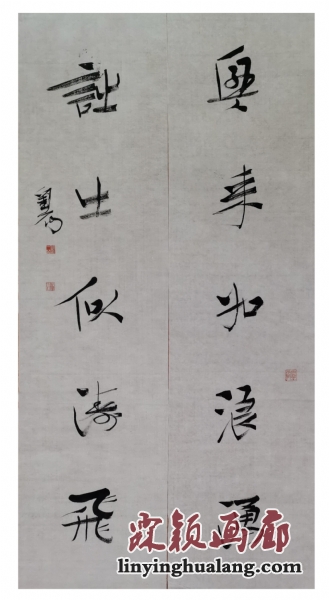 興来如浪湧
詩出似濤飛
霖颖画廊
linyinghualang.com